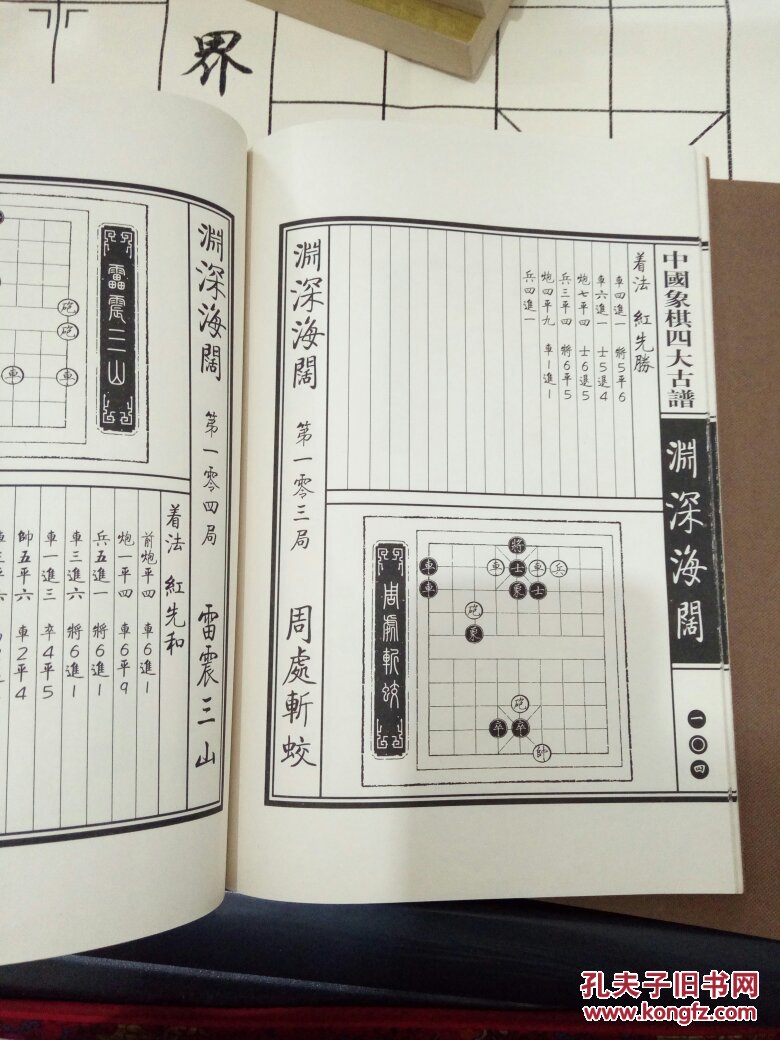 界
中國象棋四大古譜
淵深海闊
一〇四
着法 紅先勝
車四進一 將5平6
車六進一 士5退4
炮七平四 士6退5
兵三平四 將6平5
炮四平九 車1進1
兵四進一
將
車 車 士 車 兵
車 象 士
砲
象
砲
卒 卒
帥
周處斬蛟
淵深海闊 第一零三局 周處斬蛟
淵深海闊 第一零四局 雷震三山
雷震三山
砲
砲
車 車
着法 紅先和
前炮平四 車6進1
炮一平四 車6平9
兵五進一 將6進1
車三進六 將6進1
車一進三 卒4平5
帥五平六 車2平4
孔夫子旧书网
www.kongfz.com